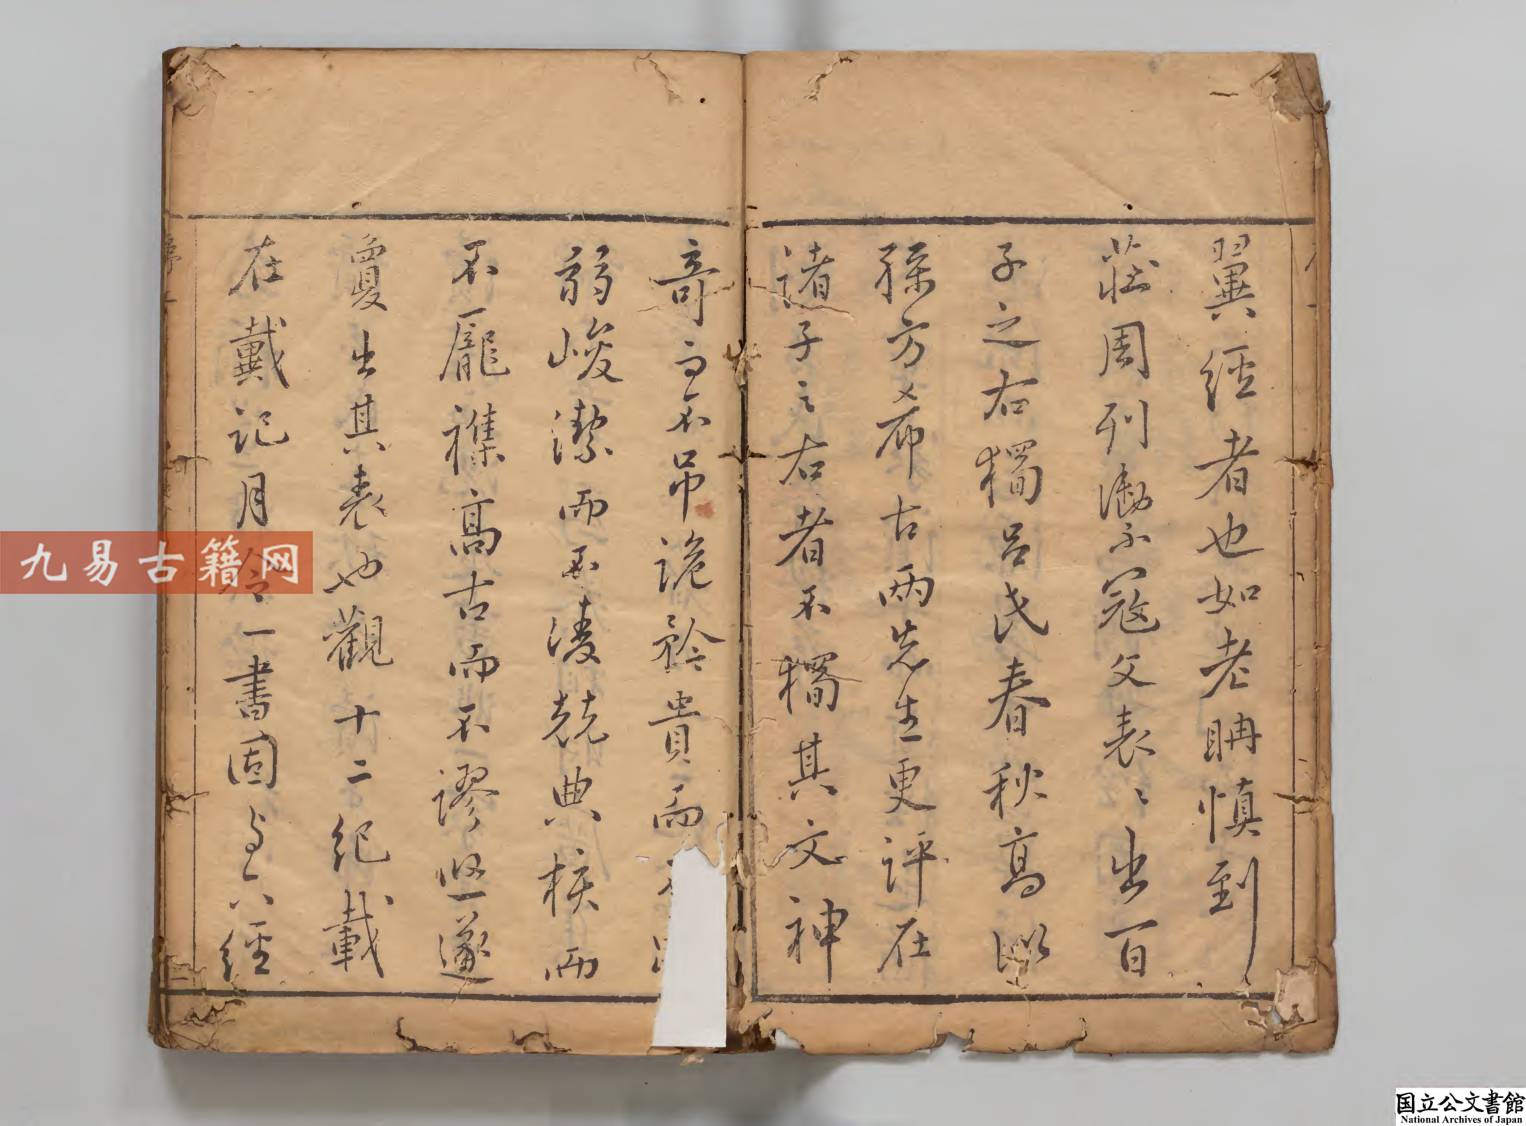 翼經者也如老聃慎到
莊周列禦寇父表〻出百
子之右獨呂氏春秋高似
孫方希古兩先生更評在
諸子之右者不獨其文神
奇而不吊詭矜貴而不
弱峻潔而不淩兢典核而
不龐襍高古而不謬悠邃
敻出其表也觀十二紀載
在戴記月令一書固與六經
序
九易古籍网
国立公文書館
National Archives of Japan